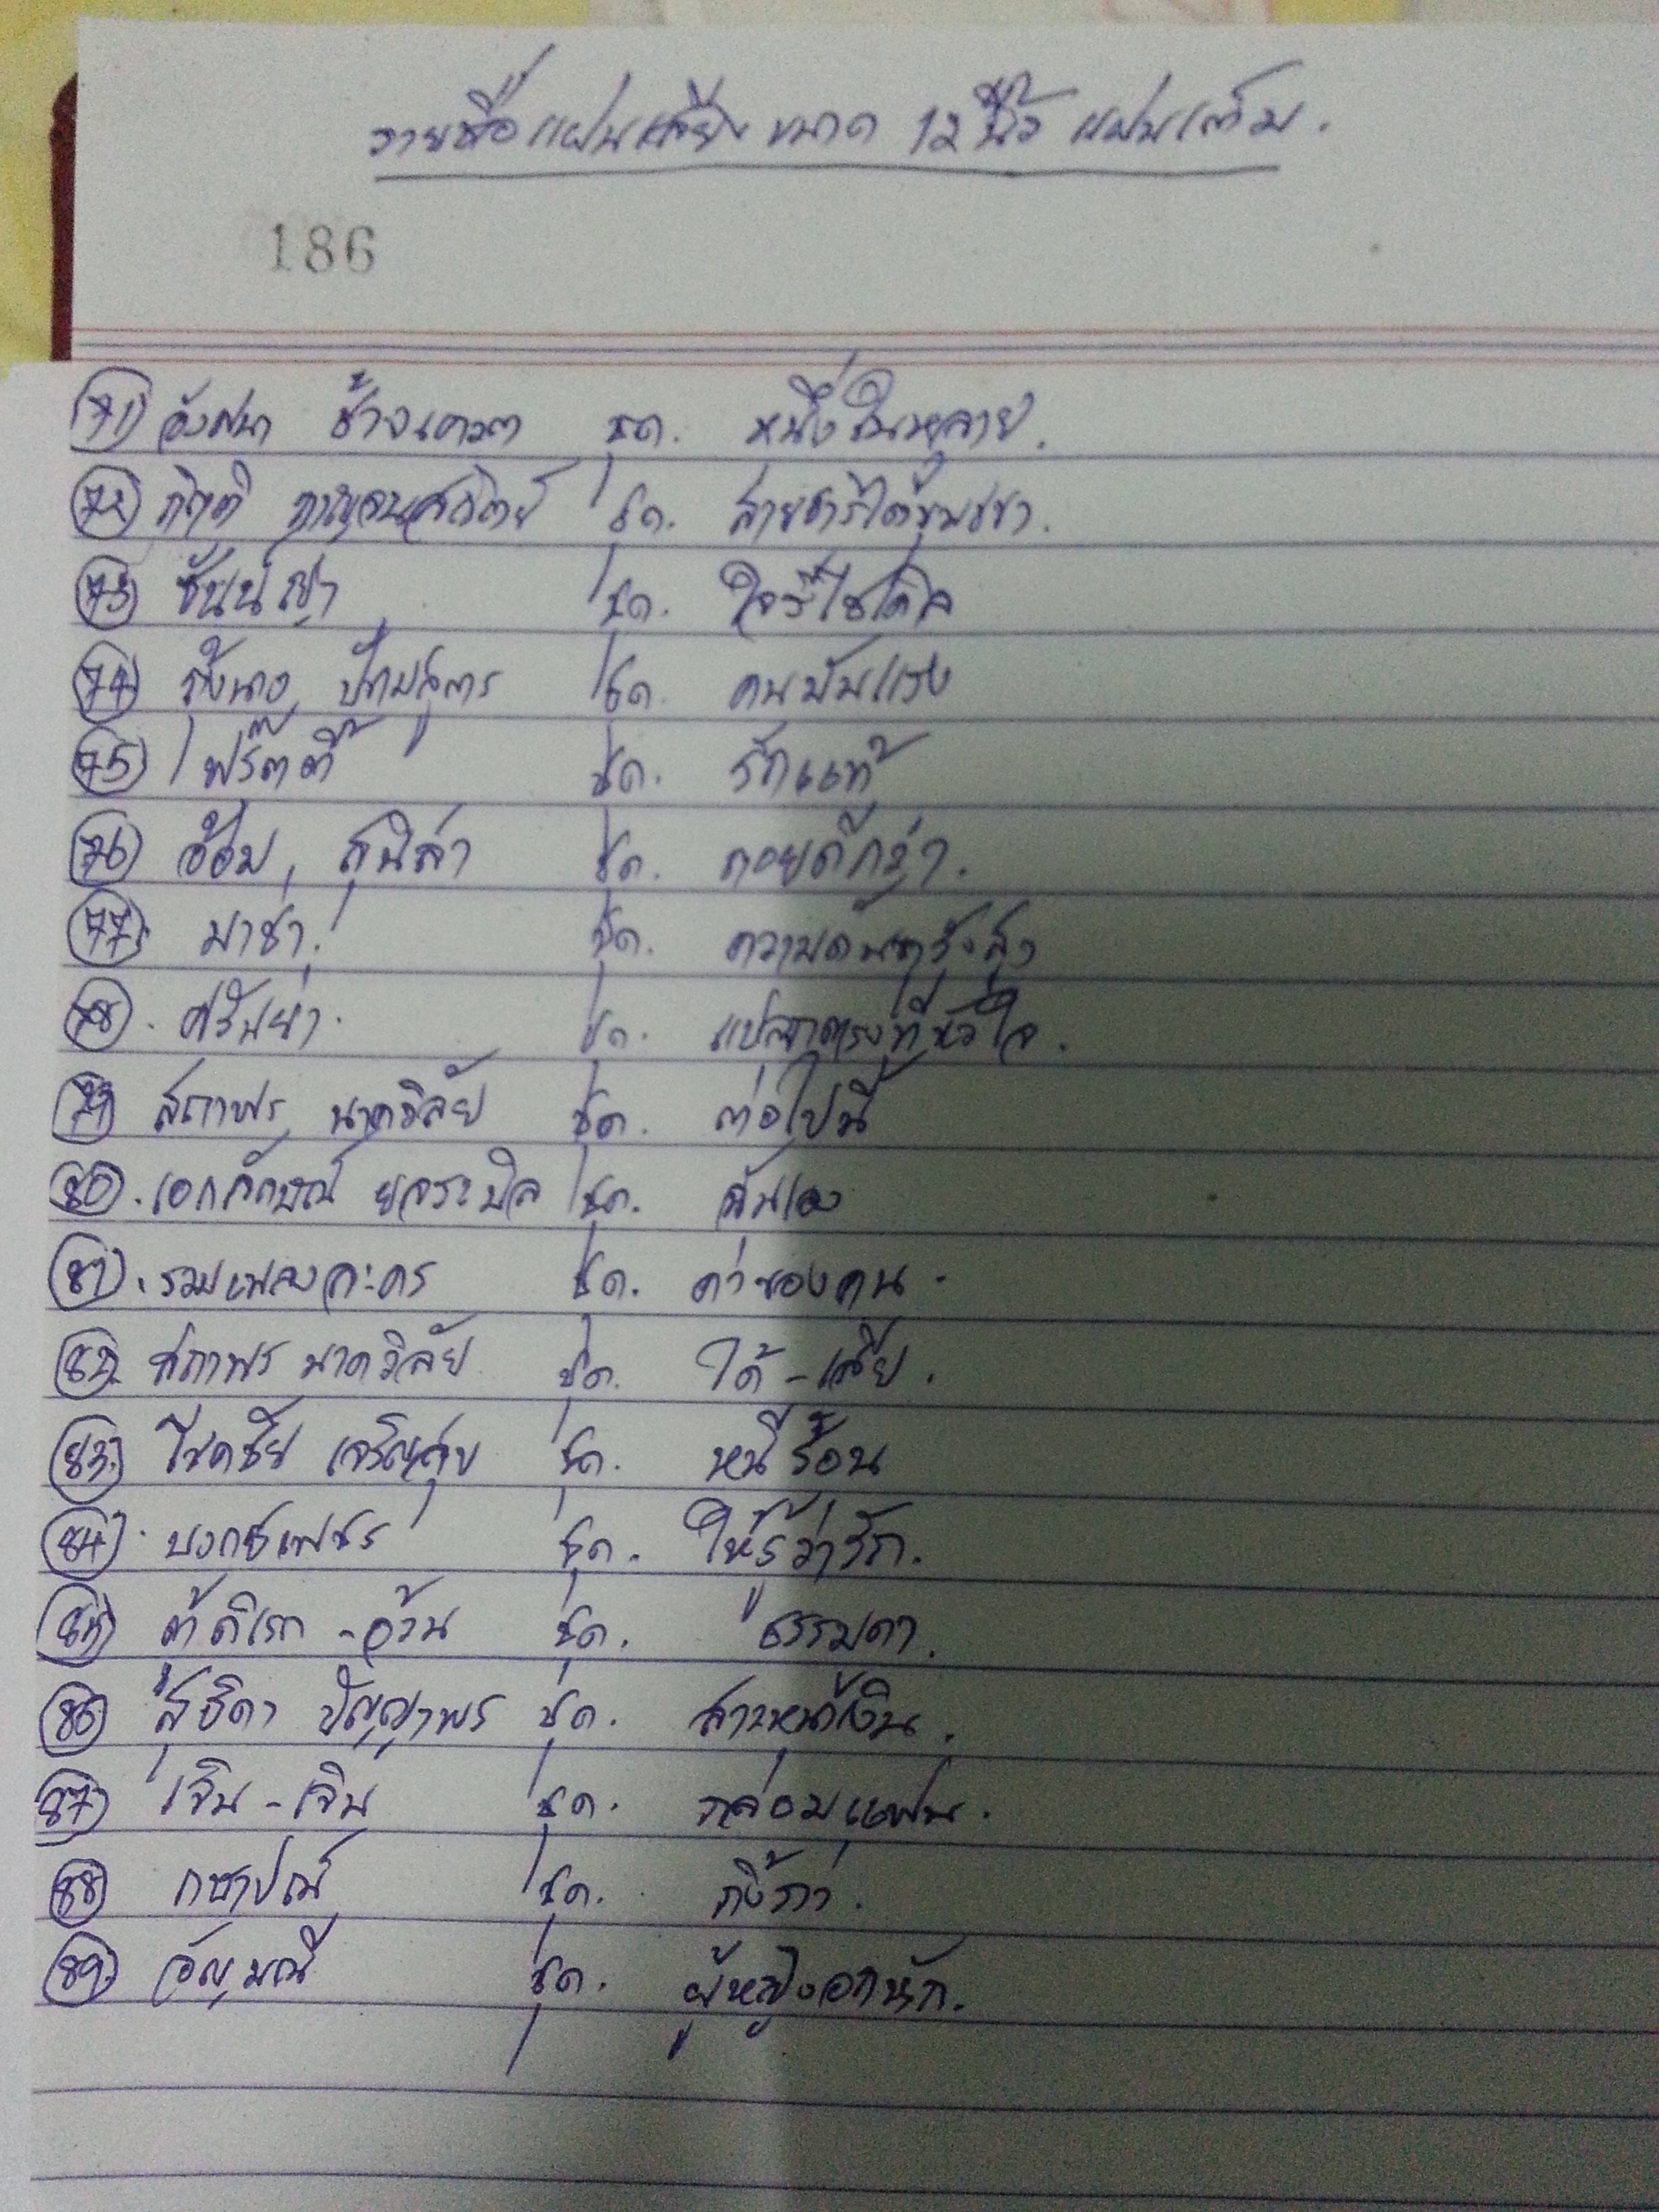 รายชื่อแผ่นเสียง ขนาด 12 นิ้ว แผ่นเต็ม.
186
71 อังศนา ช้างเศวต ชุด. หนึ่งในหลาย.
72 กิตติ กาญจนสถิตย์ ชุด. สายธารใต้ขุนเขา.
73 ชันน์ญ่า ชุด. ใจรีไซเคิล
74 รุ้งนวล ปัทมสูตร ชุด. คนมันแรง
75 เฟร็ตตี้ ชุด. รักแท้
76 อ้อม, สุนิสา ชุด. ถอยดีกว่า.
77. มาช่า. ชุด. ความดันทุรังสูง
78. ศรัณย่า. ชุด. แปลกตรงที่หัวใจ.
79 สถาพร นาควิลัย ชุด. ต่อไปนี้
80. เอกลักษณ์ ยลระบิล ชุด. ฉันเอง
81. รวมเพลงละคร ชุด. ค่าของคน.
82. สถาพร นาควิลัย ชุด. ได้-เสีย.
83. โชคชัย เจริญสุข ชุด. หนีร้อน
84. บงกชเพชร ชุด. ให้รู้ว่ารัก.
85 ตู้ ดิเรก - อ้วน ชุด. ธรรมดา.
86 สุธิดา ปัญญาพร ชุด. สามหน้าเงิน.
87 เจิน - เจิน ชุด. กล่อมแฟน.
88 กษาปณ์ ชุด. กิ้งก่า.
89. อัญมณี ชุด. ผู้หญิงอกหัก.